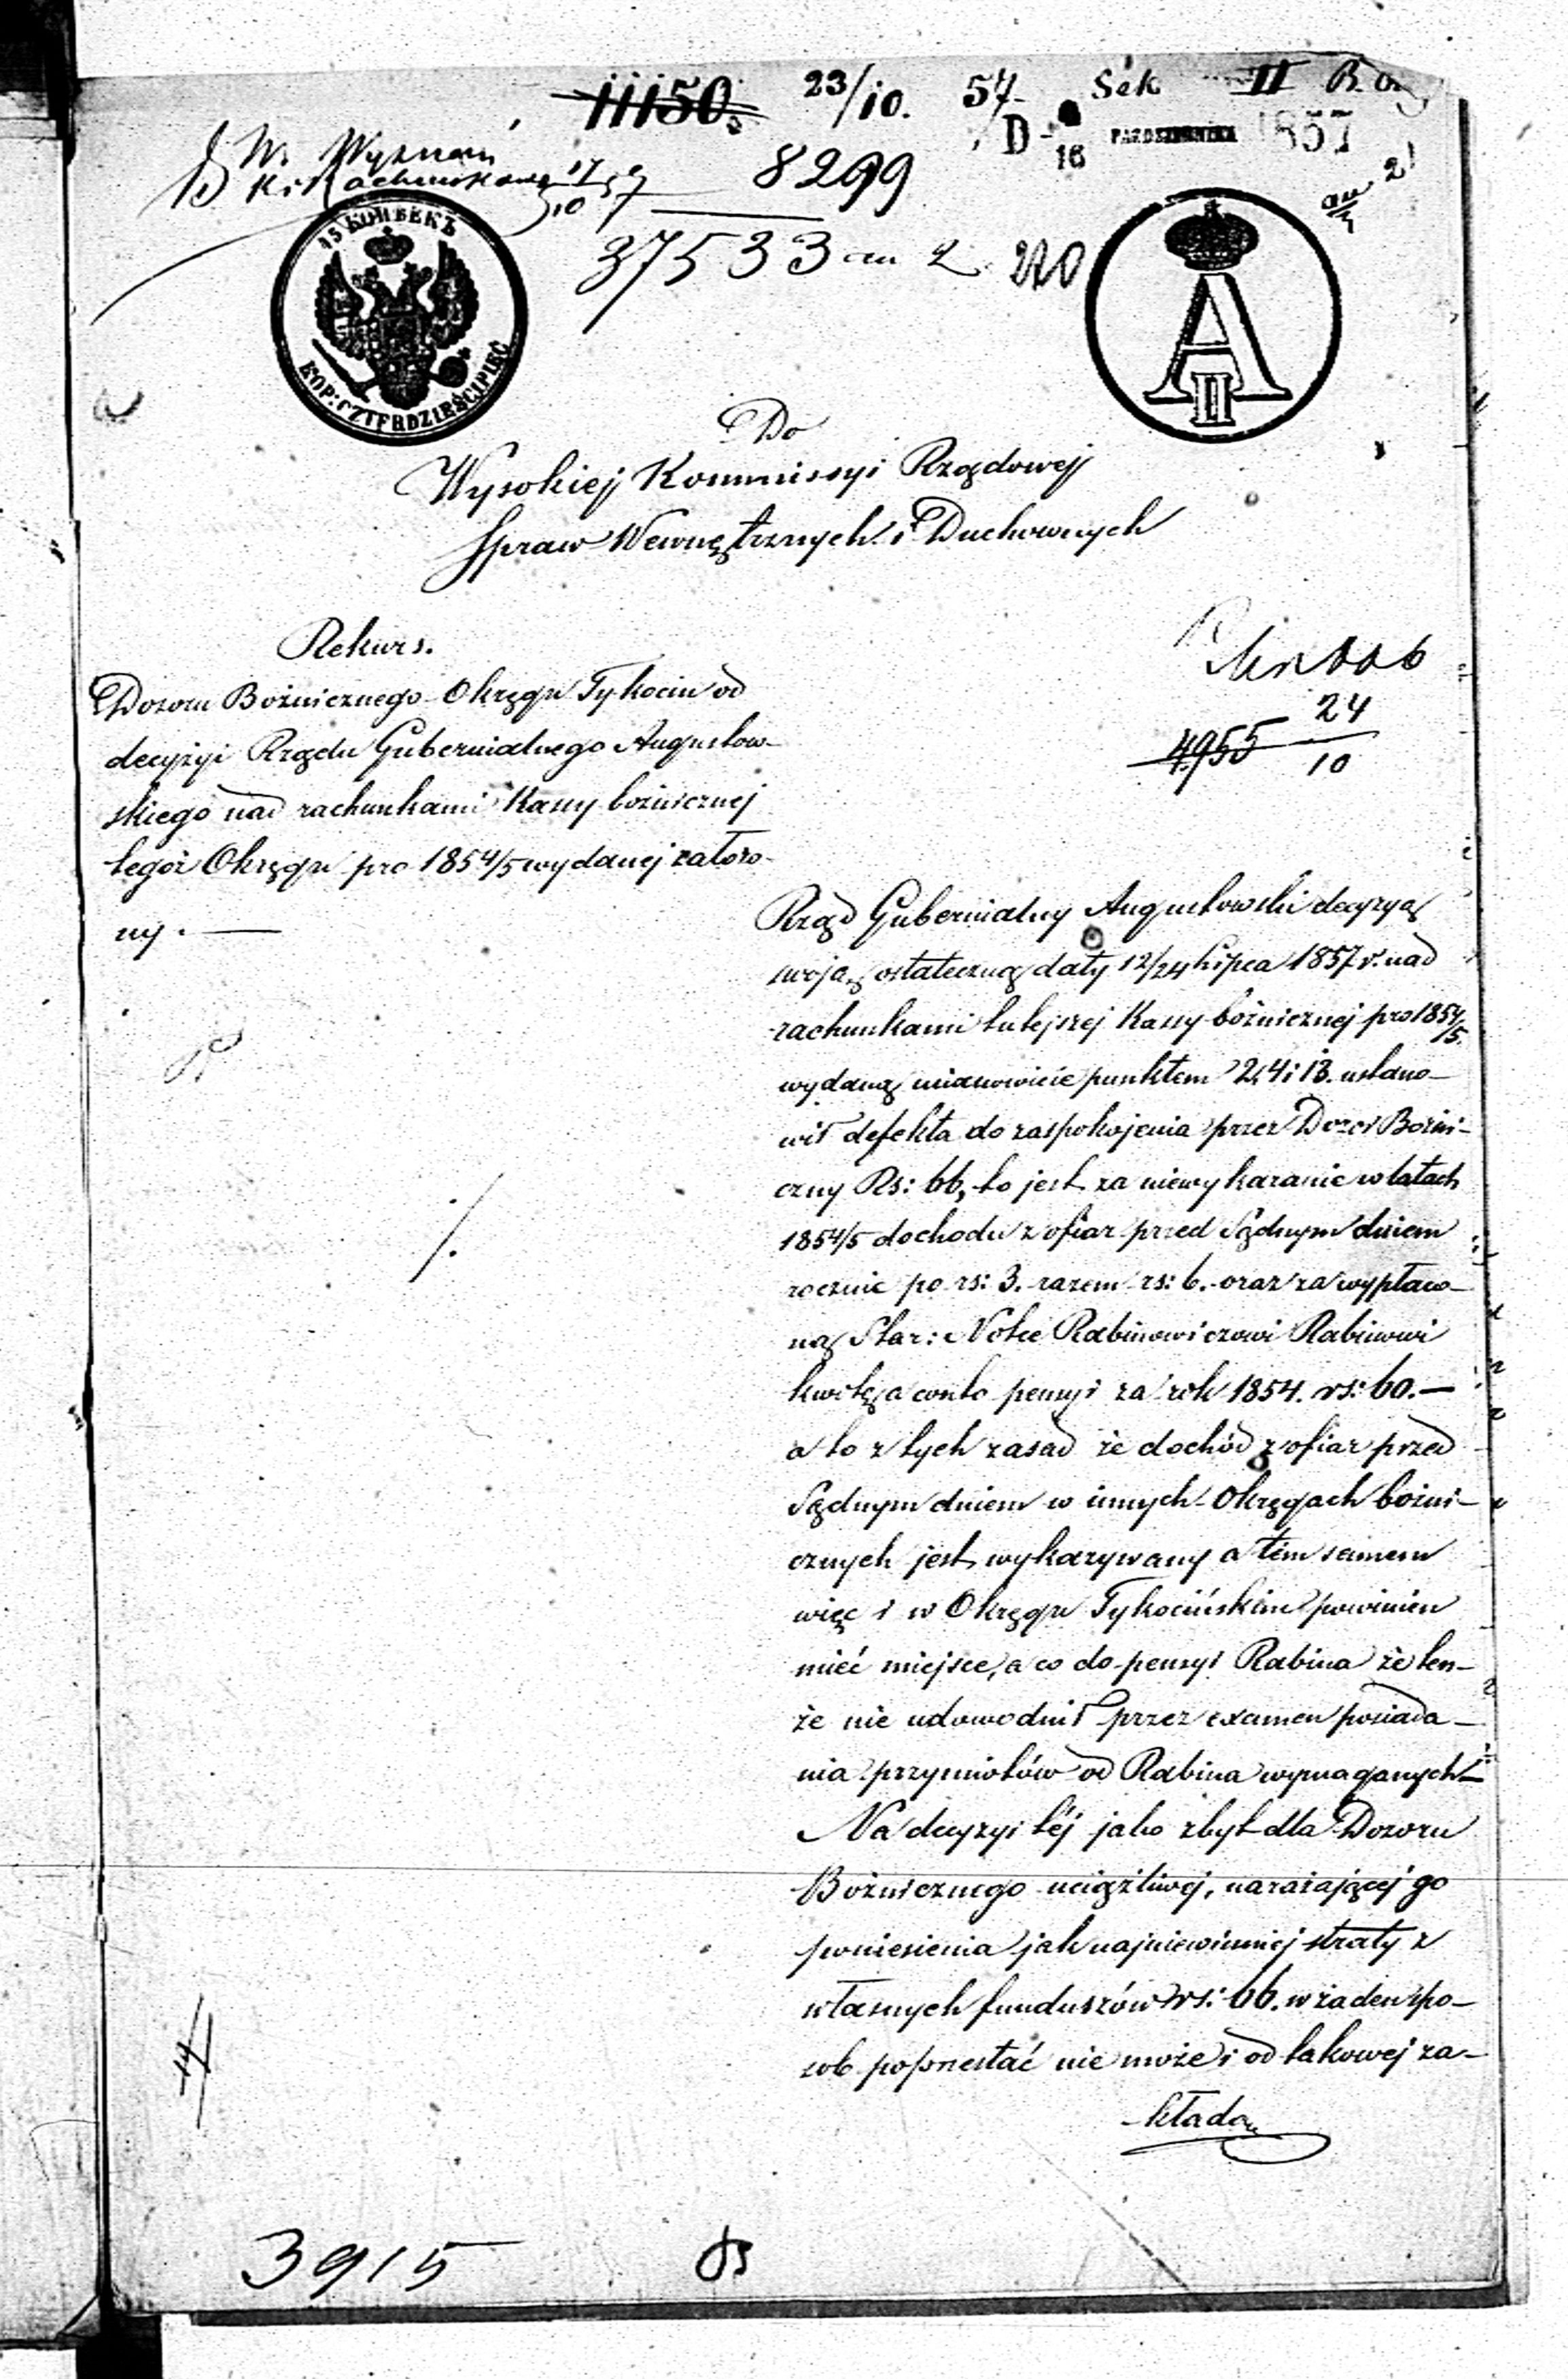 11150. 23/10. 57 Sek II B. O.
D - 16 PAŹDZIERNIKA 1857
W. Wyznań
K. Rachunkowa 17/10 57
8299
37533 220
45 КОПѢЕКЪ
KOP: CZTERDZIEŚCI PIĘĆ
A II
Do
Wysokiej Kommissyi Rządowej
Spraw Wewnętrznych i Duchownych
Rekurs.
Dozoru Bożnicznego Okręgu Tykocin od
decyzyi Rządu Gubernialnego Augustow-
skiego nad rachunkami Kassy bożnicznej
tegoż Okręgu pro 1854/5 wydanej założo-
ny. —
24
4955 10
Rząd Gubernialny Augustowski decyzyą
swoją ostateczną daty 12/24 Lipca 1857 r. nad
rachunkami tutejszej Kassy bożnicznej pro 1854/5.
wydaną mianowicie punktem 2, 4 i 13. ustano-
wił defekta do zaspokojenia przez Dozór Bożni-
czny Rs: 66, to jest za niewykazanie w latach
1854/5 dochodu z ofiar przed Sądnym dniem
rocznie po rs: 3. razem rs: 6. oraz za wypłaco-
ną Star: Notce Rabinowiczowi Rabinowi
kwotę a conto pensyi za rok 1854. rs: 60. —
a to z tych zasad że dochód z ofiar przed
Sądnym dniem w innych Okręgach bożni-
cznych jest wykazywany a tem samem
więc i w Okręgu Tykocińskim powinien
mieć miejsce, a co do pensyi Rabina że ten-
że nie udowodnił przez examen posiada-
nia przymiotów od Rabina wymaganych —
Na decyzyi téj jako zbyt dla Dozoru
Bożnicznego uciążliwej, narażającej go
poniesienia jak najniewinniej straty z
własnych funduszów rs: 66. w żaden spo-
sób poprzestać nie może i od takowej za-
-kłada
14
3915